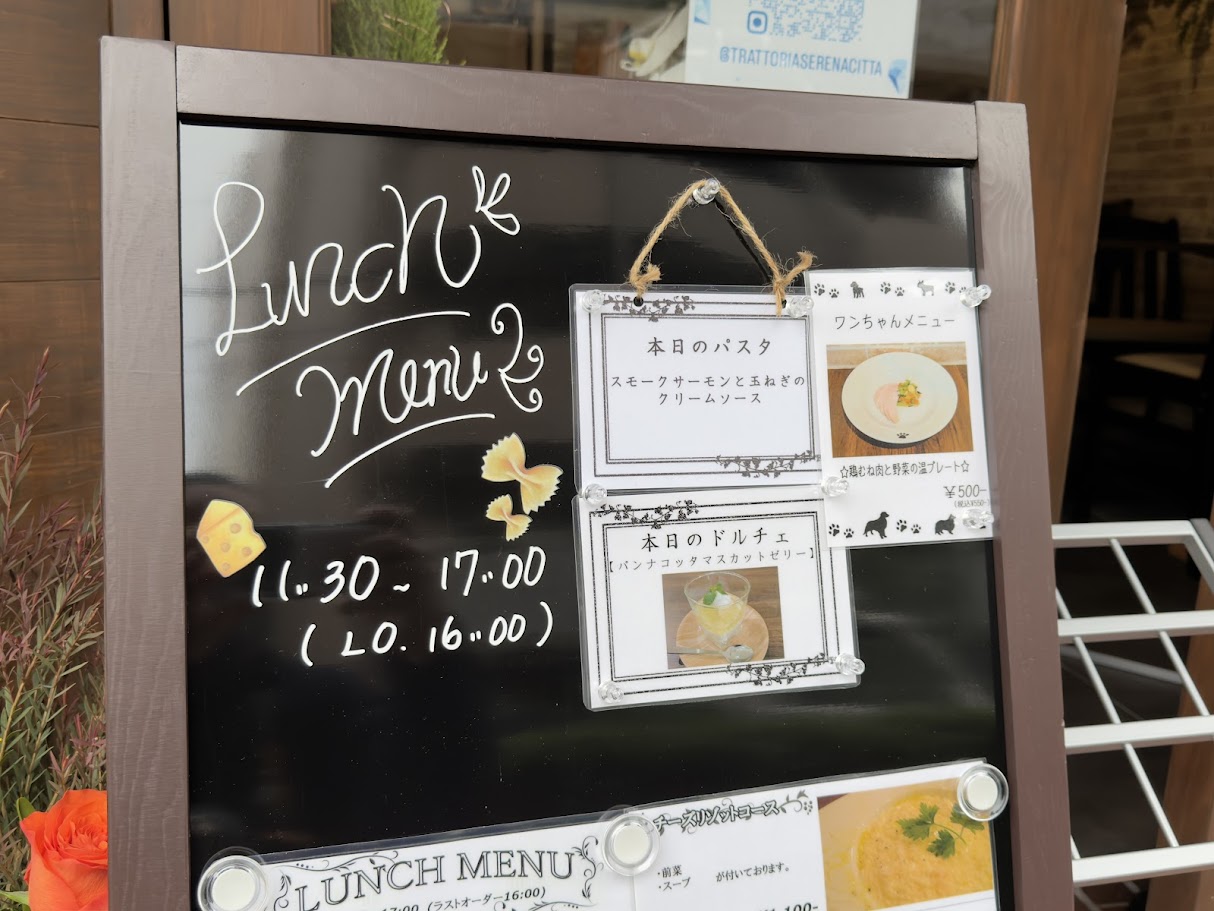 @TRATTORIASERENACITTA
Lunch
Menu
11:30~17:00
(LO. 16:00)
本日のパスタ
スモークサーモンと玉ねぎの
クリームソース
ワンちゃんメニュー
☆鶏むね肉と野菜の温プレート☆
¥500-
(税込¥550-)
本日のドルチェ
【パンナコッタマスカットゼリー】
LUNCH MENU
17:00 (ラストオーダー16:00)
チーズリゾットコース
・前菜
・スープ
が付いております。